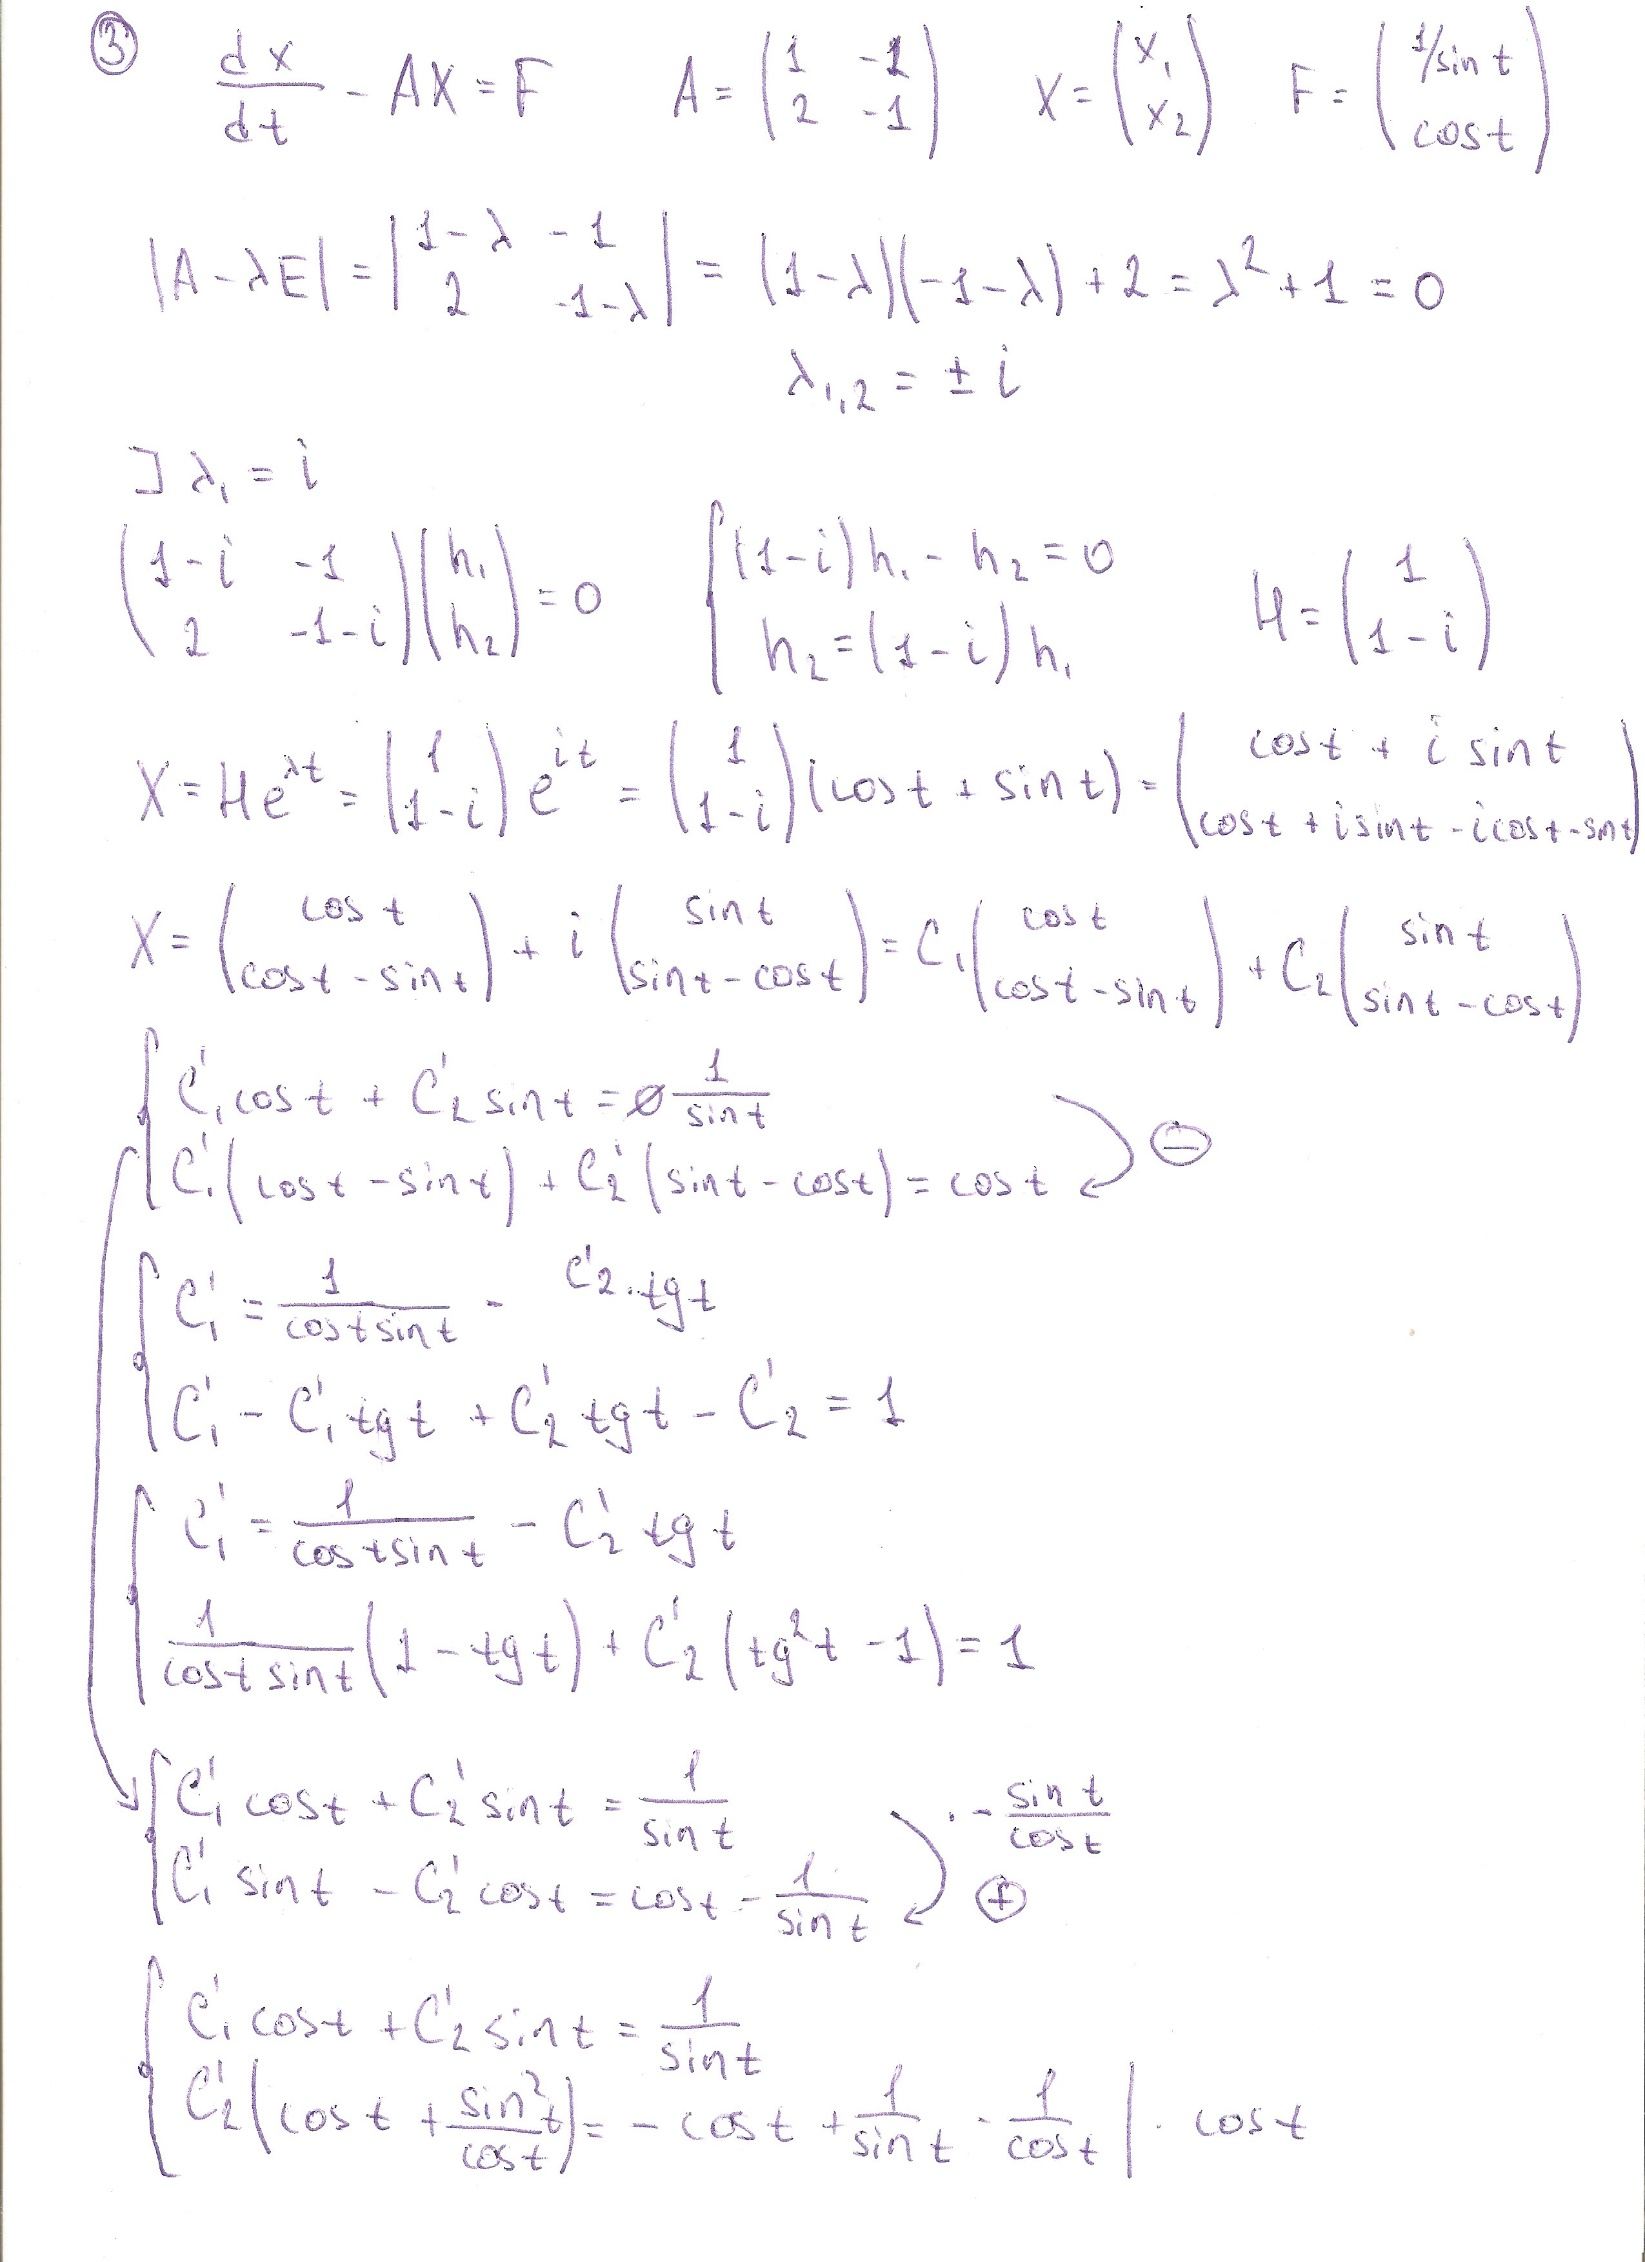 ③ dx/dt - AX = F A = (1 -1; 2 -1) X = (x₁; x₂) F = (1/sin t; cos t)
|A - λE| = |1-λ -1; 2 -1-λ| = (1-λ)(-1-λ) + 2 = λ² + 1 = 0
λ₁,₂ = ± i
∃ λ₁ = i
(1-i -1; 2 -1-i)(h₁; h₂) = 0 {(1-i)h₁ - h₂ = 0; h₂ = (1-i)h₁ H = (1; 1-i)
X = He^λt = (1; 1-i) e^it = (1; 1-i)(cos t + sin t) = (cos t + i sin t; cos t + i sin t - i cos t - sin t)
X = (cos t; cos t - sin t) + i (sin t; sin t - cos t) = C₁(cos t; cos t - sin t) + C₂(sin t; sin t - cos t)
C₁' cos t + C₂' sin t = 1/sin t
C₁'(cos t - sin t) + C₂'(sin t - cos t) = cos t ⊖
C₁' = 1/(cos t sin t) - C₂' · tg t
C₁' - C₁' tg t + C₂' tg t - C₂' = 1
C₁' = 1/(cos t sin t) - C₂' tg t
1/(cos t sin t) (1 - tg t) + C₂'(tg² t - 1) = 1
C₁' cos t + C₂' sin t = 1/sin t · - sin t/cos t
C₁' sin t - C₂' cos t = cos t - 1/sin t ⊕
C₁' cos t + C₂' sin t = 1/sin t
C₂'(cos t + sin² t/cos t) = - cos t + 1/sin t - 1/cos t | · cos t